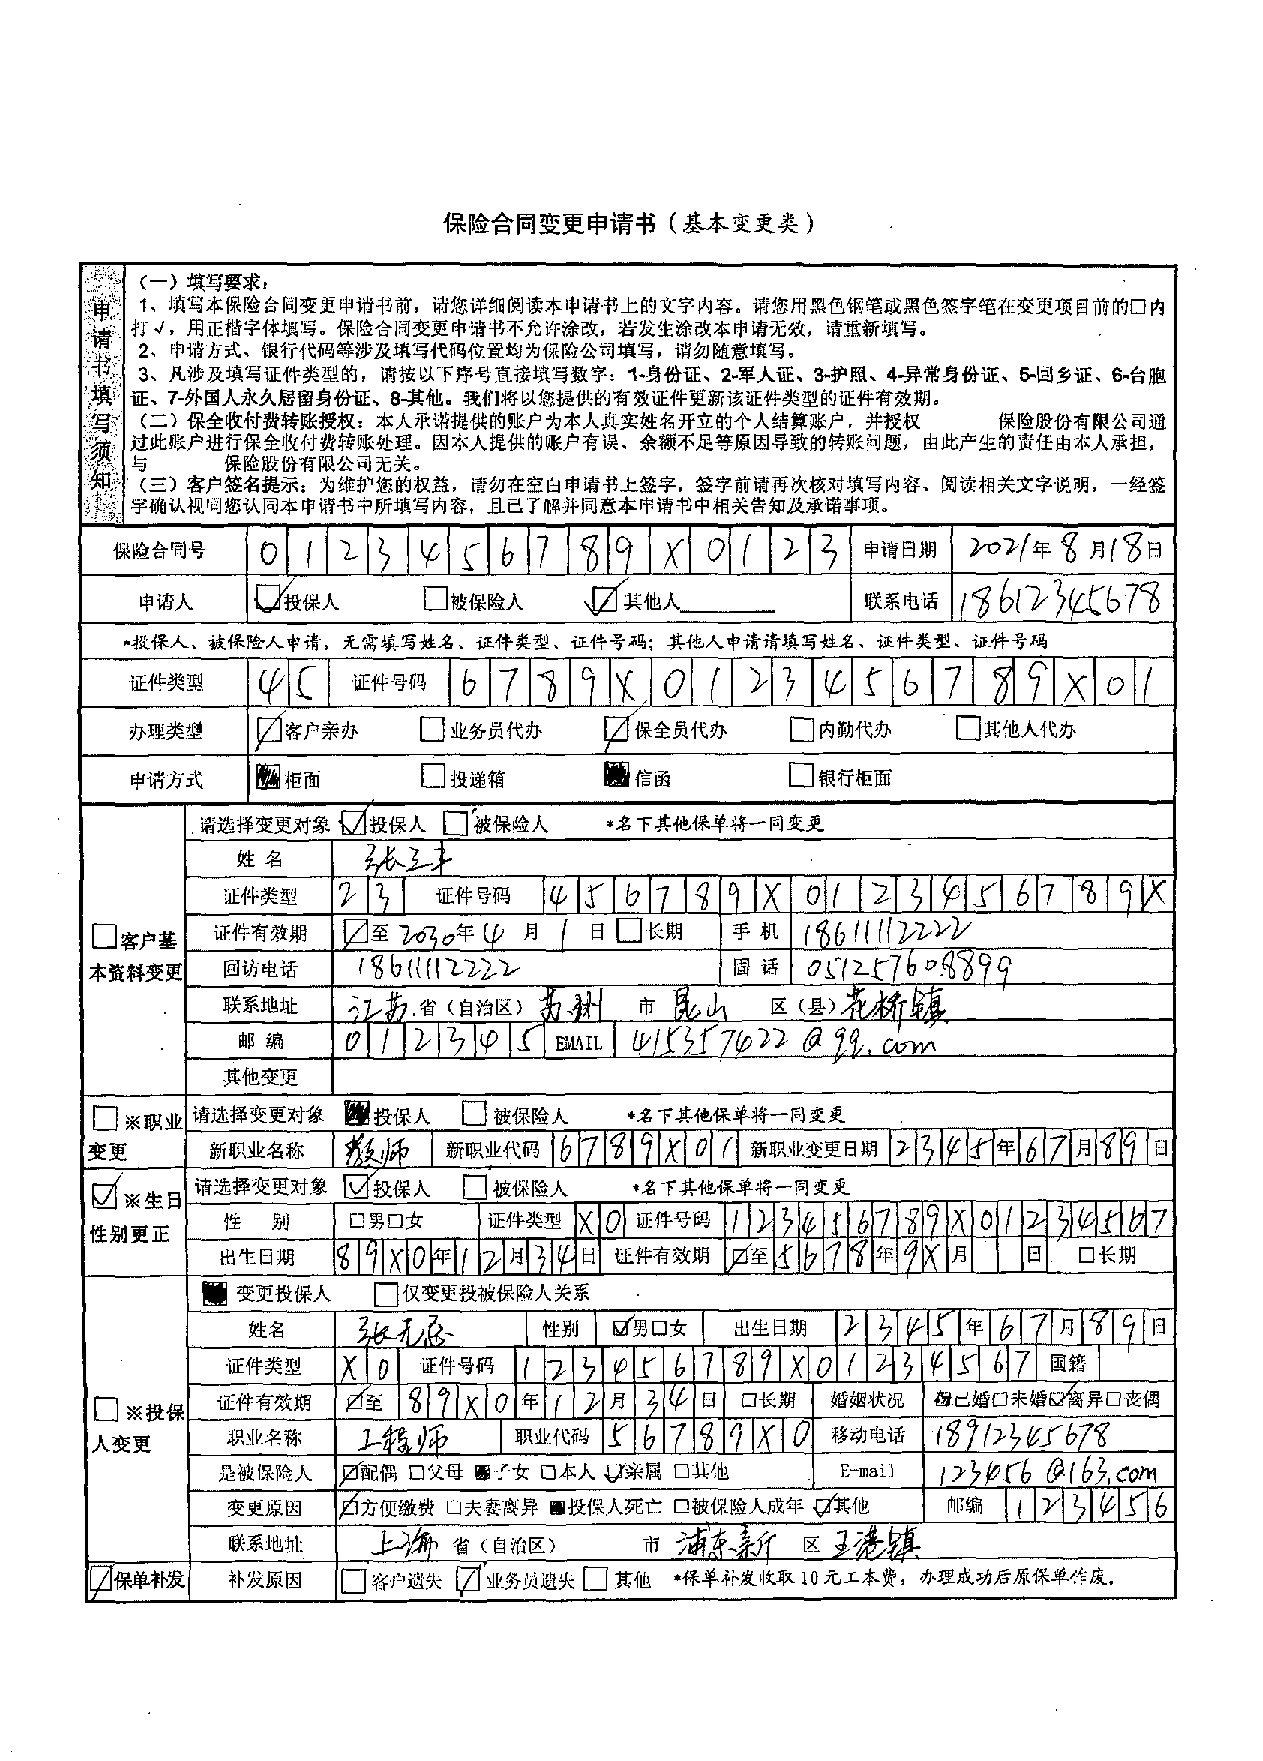 保险合同变更申请书（基本变更类）
申请书填写须知
（一）填写要求：
1、填写本保险合同变更申请书前，请您详细阅读本申请书上的文字内容。请您用黑色钢笔或黑色签字笔在变更项目前的□内
打√，用正楷字体填写。保险合同变更申请书不允许涂改，若发生涂改本申请无效，请重新填写。
2、申请方式、银行代码等涉及填写代码位置均为保险公司填写，请勿随意填写。
3、凡涉及填写证件类型的，请按以下序号直接填写数字：1-身份证、2-军人证、3-护照、4-异常身份证、5-回乡证、6-台胞
证、7-外国人永久居留身份证、8-其他。我们将以您提供的有效证件更新该证件类型的证件有效期。
（二）保全收付费转账授权：本人承诺提供的账户为本人真实姓名开立的个人结算账户，并授权 保险股份有限公司通
过此账户进行保全收付费转账处理。因本人提供的账户有误、余额不足等原因导致的转账问题，由此产生的责任由本人承担，
与 保险股份有限公司无关。
（三）客户签名提示：为维护您的权益，请勿在空白申请书上签字，签字前请再次核对填写内容、阅读相关文字说明，一经签
字确认视同您认同本申请书中所填写内容，且已了解并同意本申请书中相关告知及承诺事项。
保险合同号 0 1 2 3 4 5 6 7 8 9 X 0 1 2 3 申请日期 2021年8月18日
申请人 ☑投保人 □被保险人 ☑其他人 联系电话 18612345678
*投保人、被保险人申请，无需填写姓名、证件类型、证件号码；其他人申请请填写姓名、证件类型、证件号码
证件类型 4 5 证件号码 6 7 8 9 X 0 1 2 3 4 5 6 7 8 9 X 0 1
办理类型 ☑客户亲办 □业务员代办 ☑保全员代办 □内勤代办 □其他人代办
申请方式 ■柜面 □投递箱 ■信函 □银行柜面
□客户基本资料变更
请选择变更对象 ☑投保人 □被保险人 *名下其他保单将一同变更
姓 名 张三丰
证件类型 2 3 证件号码 4 5 6 7 8 9 X 0 1 2 3 4 5 6 7 8 9 X
证件有效期 ☑至2030年4月1日 □长期 手 机 18611112222
回访电话 18611112222 固 话 051257608899
联系地址 江苏省（自治区）苏州市昆山区（县）花桥镇
邮 编 0 1 2 3 4 5 EMAIL 415357422@qq.com
其他变更
□※职业变更
请选择变更对象 ■投保人 □被保险人 *名下其他保单将一同变更
新职业名称 教师 新职业代码 6 7 8 9 X 0 1 新职业变更日期 2 3 4 5年6 7月8 9日
☑※生日性别更正
请选择变更对象 ☑投保人 □被保险人 *名下其他保单将一同变更
性 别 □男□女 证件类型 X 0 证件号码 1 2 3 4 5 6 7 8 9 X 0 1 2 3 4 5 6 7
出生日期 8 9 X 0年1 2月3 4日 证件有效期 ☑至5 6 7 8年9 X月 日 □长期
□※投保人变更
■变更投保人 □仅变更投被保险人关系
姓名 张无忌 性别 ☑男□女 出生日期 2 3 4 5年6 7月8 9日
证件类型 X 0 证件号码 1 2 3 4 5 6 7 8 9 X 0 1 2 3 4 5 6 7 国籍
证件有效期 ☑至8 9 X 0年1 2月3 4日 □长期 婚姻状况 ☑已婚□未婚☑离异□丧偶
职业名称 工程师 职业代码 5 6 7 8 9 X 0 移动电话 18912345678
是被保险人 ☑配偶 □父母 ■子女 □本人 ☑亲属 □其他 E-mail 123456@163.com
变更原因 ☑方便缴费 □夫妻离异 ■投保人死亡 □被保险人成年 ☑其他 邮编 1 2 3 4 5 6
联系地址 上海省（自治区） 市浦东新区王港镇
☑保单补发 补发原因 □客户遗失 ☑业务员遗失 □其他 *保单补发收取10元工本费，办理成功后原保单作废。